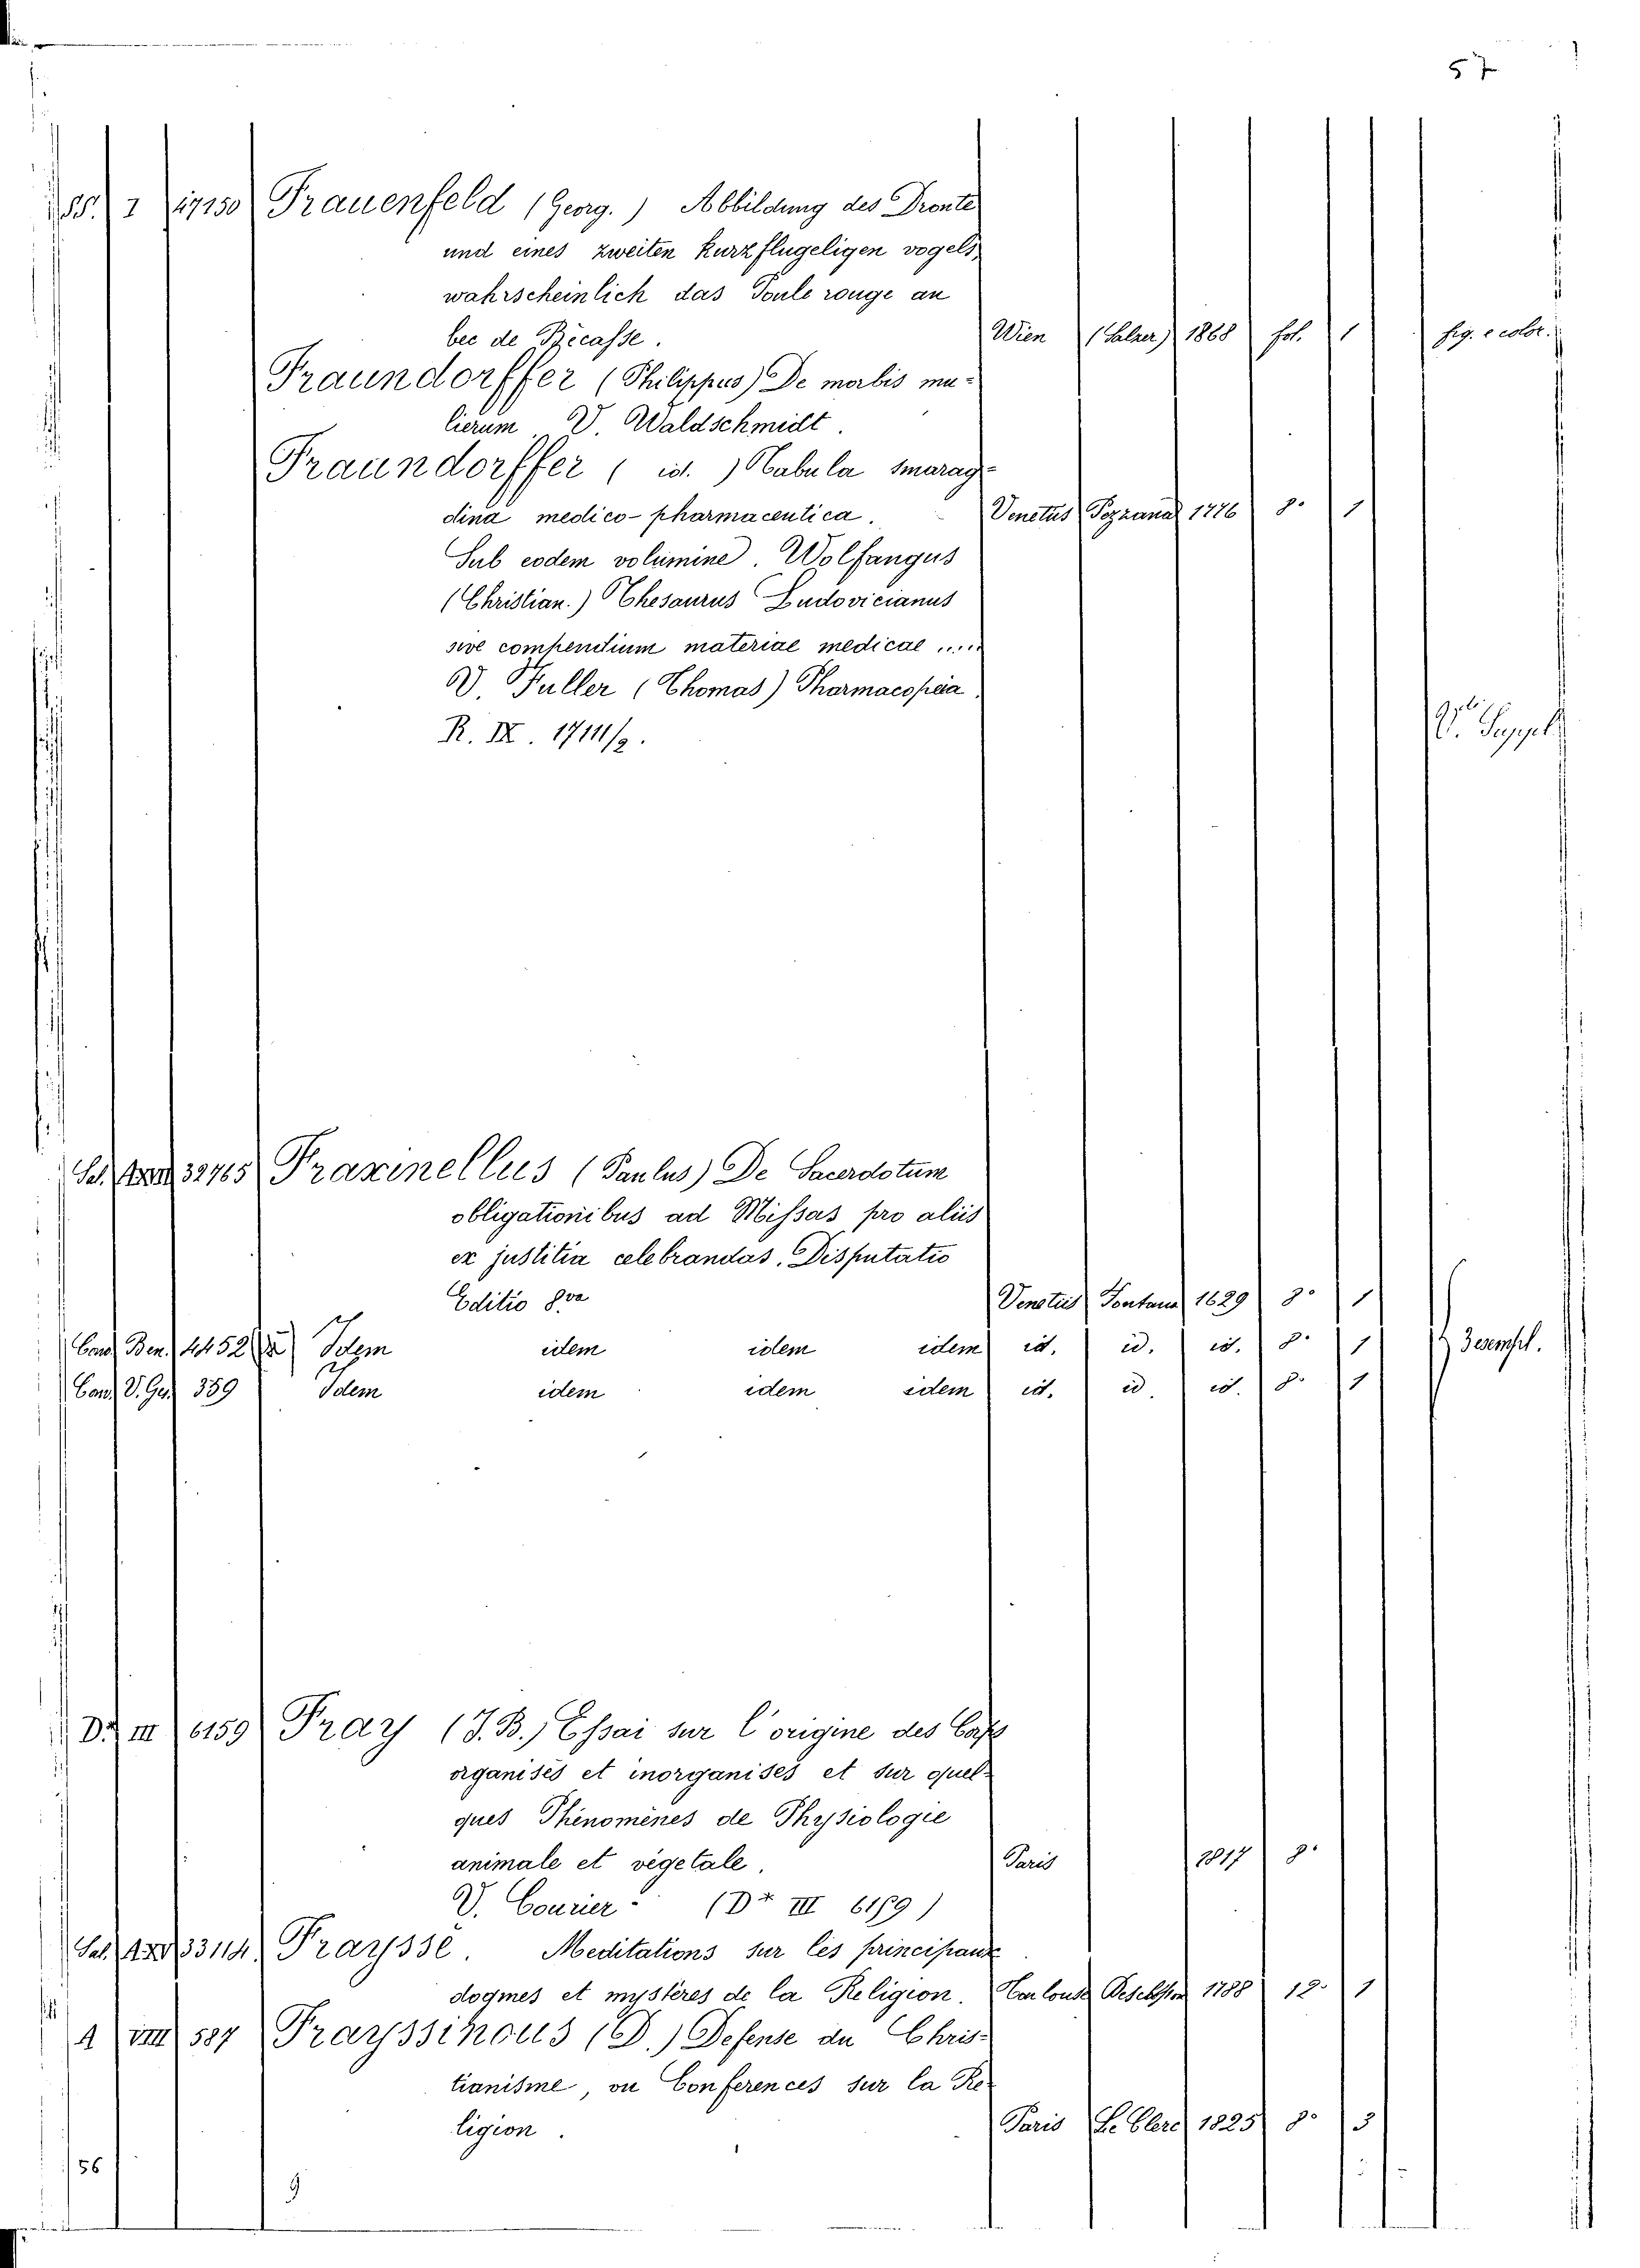 57
SS. I 17150 Frauenfeld (Georg.) Abbildung des Dronte
und eines zweiten kurzflugeligen vogels,
wahrscheinlich das Poule rouge an
bec de Bécasse. Wien (Salzer) 1868 fol. 1 fig. e color.
Fraundorffer (Philippus) De morbis mu-
lierum V. Waldschmidt.
Fraundorffer ( id. ) Tabula smarag-
dina medico-pharmaceutica. Venetiis Pezzana 1776 8° 1
Sub eodem volumine. Wolfangus
(Christian.) Thesaurus Ludovicianus
sive compendium materiae medicae .....
V. Fuller (Thomas) Pharmacopeia
R. IX. 17111/2.
V. Suppl.
Sal. 32765 Fraxinellus (Paulus) De Sacerdotum
obligationibus ad Missas pro aliis
ex justitia celebrandas. Disputatio
Editio 8va Venetiis Fontana 1629 8° 1
Cons. Ben. 4452 Idem idem idem idem id. id. id. 8° 1 3 esempl.
Cons. V. Ges. 389 Idem idem idem idem id. id. id. 8° 1
Dr. III 6159 Fray (J.B.) Essai sur l'origine des Caps
organisés et inorganisés et sur quel-
ques Phénomènes de Physiologie
animale et végetale. Paris 1817 8°
V. Courier - (Dr III 6159)
Sal. 33114 Fraysse. Meditations sur les principaux
dogmes et mystères de la Religion. Toulouse 1788 12° 1
A VIII 587 Frayssinous (D.) Defense du Chris-
tianisme, ou Conferences sur la Re-
ligion. Paris Le Clerc 1825 8° 3
56
9